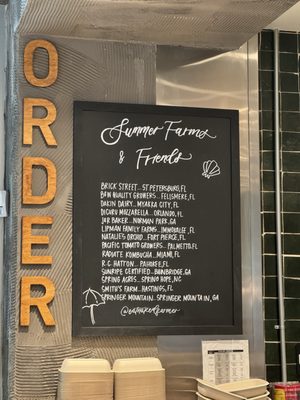 ORDER
Summer Farms
& Friends
BRICK STREET...ST. PETERSBURG, FL
B&W QUALITY GROWERS...FELLSMERE, FL
DAKIN DAIRY...MYAKKA CITY, FL
DICIURO MOZZARELLA...ORLANDO, FL
JAR BAKER...NORMAN PARK, GA
LIPMAN FAMILY FARMS...IMMOKALEE, FL
NATALIE'S ORCHID...FORT PIERCE, FL
PACIFIC TOMATO GROWERS...PALMETTO, FL
RADIATE KOMBUCHA...MIAMI, FL
R.C HATTON...PAHOKEE, FL
SUNRIPE CERTIFIED...BAINBRIDGE, GA
SPRING ACRES...SPRING HOPE, NC
SMITH'S FARM...HASTINGS, FL
SPRINGER MOUNTAIN...SPRINGER MOUNTAIN, GA